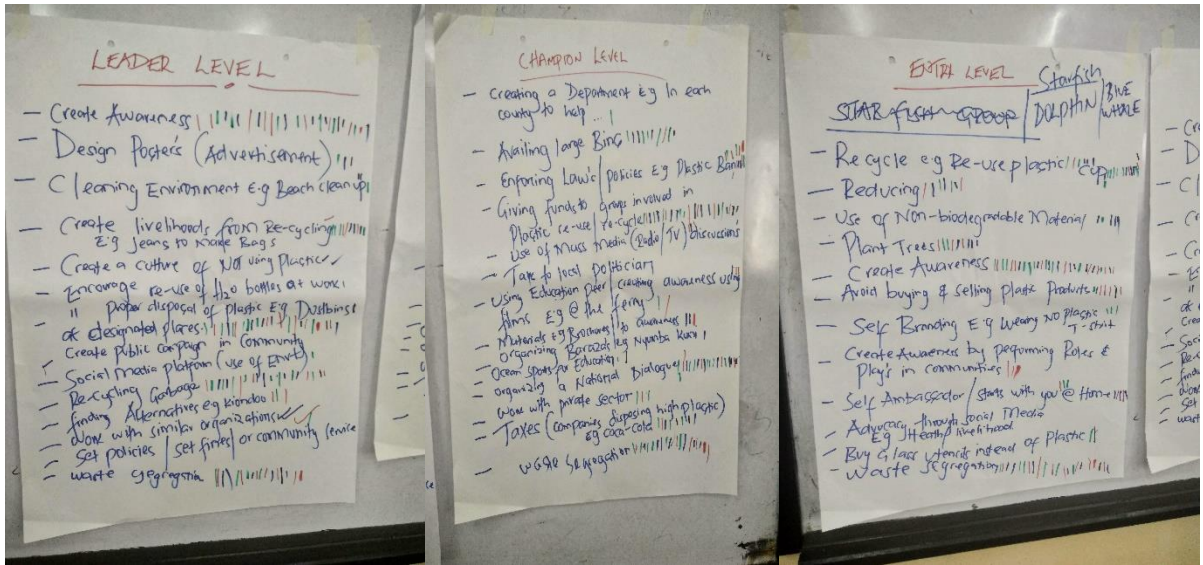 LEADER LEVEL
- Create Awareness
- Design Poster's (Advertisement)
- Cleaning Environment E.g Beach cleanup
- Create livelihoods from Re-cycling
E.g Jeans to Make Bags
- Create a culture of Not using Plastic
- Encourage re-use of H2o bottles at work
- " Proper disposal of plastic E.g Dustbins
at designated places
Create public campaign in Community
- Social Media platform (use of
- Re-cycling Garbage
- finding Alternatives eg kiondoo
- Work with similar organizations
- Set policies / set fines / or community service
- waste segregation
CHAMPION LEVEL
- Creating a Department E.g In each
county to help...
- Availing large Bins
- Enforing Law's / policies E.g Plastic
- Giving funds to groups involved in
Plastic re-use / re-cycle
- Use of Mass Media (Radio / TV) discussions
- Take to local politician
- Using Education peer / creating awareness using
films E.g @ the ferry
- Materials E.g Broshares to awareness
- Organizing Barazas eg Nyumba Kumi
- Ocean sports for Education
- organizing a National Dialogue
- Work with private sector
- Taxes (companies disposing high plastic)
eg coca-cola
- waste Segregation
ENTRY LEVEL
Starfish
STAR FISH GROUP / DOLPHIN / BLUE
WHALE
- Recycle e.g Re-use plastic cup
- Reducing
- Use of Non-biodegradable Material
- Plant Trees
- Create Awareness
- Avoid buying & selling plastic Products
- Self Branding E.g Wearing No plastic
T-shirt
- Create Awareness by performing Roles &
Play's in communities
- Self Ambassador / starts with you @ Home
- Advocacy through social Media
E.g Health / livelihood
- Buy Glass utencils instead of Plastic
- Waste segregation